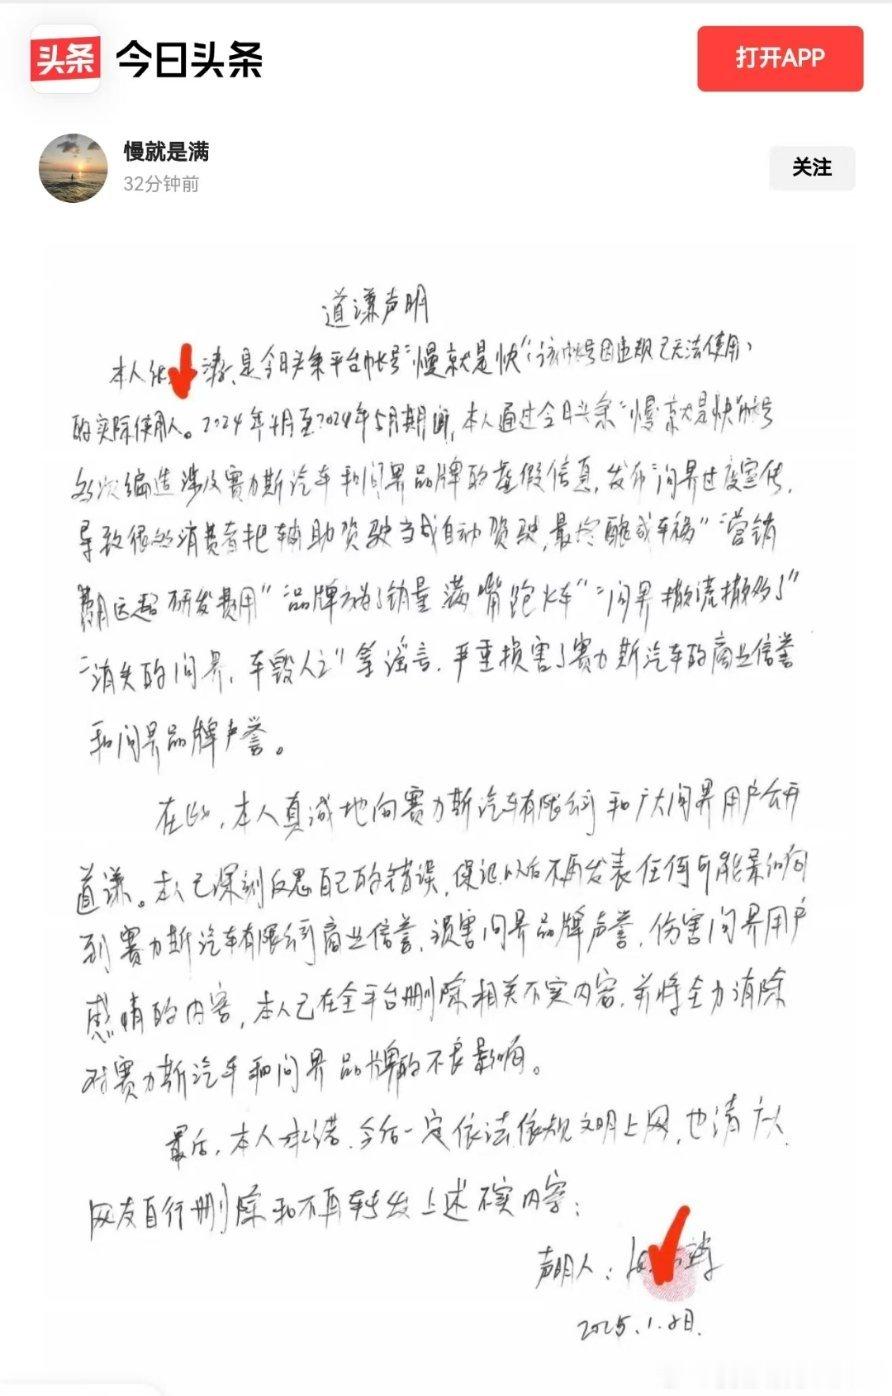 头条 今日头条
打开APP
慢就是满
32分钟前
关注
道谦声明
本人 涛,是今日头条平台帐号“慢就是快”(该帐号因违规已无法使用)
的实际使用人。2024年4月至2024年5月期间,本人通过今日头条“慢就是快”帐号
多次编造涉及赛力斯汽车和问界品牌的虚假信息,发布“问界过度宣传,
导致很多消费者把辅助驾驶当成自动驾驶,最终酿成车祸”“营销
费用远超研发费用”“品牌方为了销量满嘴跑火车”“问界撤流撤多了”
“消失的问界,车毁人亡”等谣言,严重损害了赛力斯汽车的商业信誉
和问界品牌声誉。
在此,本人真诚地向赛力斯汽车有限公司和广大问界用户公开
道谦。本人已深刻反思自己的错误,保证以后不再发表任何可能影响
到赛力斯汽车有限公司商业信誉,损害问界品牌声誉,伤害问界用户
感情的内容,本人已在全平台删除相关不实内容,并将全力消除
对赛力斯汽车和问界品牌的不良影响。
最后,本人承诺,今后一定依法依规文明上网,也请广大
网友自行删除和不再转发上述不实内容;
声明人:
2025.1.8日.